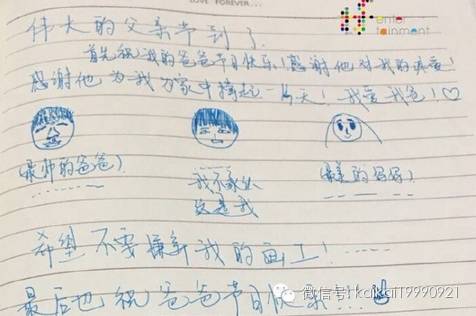 LOVE FOREVER...
enter
tainment
伟大的父亲节到了.
首先祝我的爸爸节日快乐!感谢他对我的疼爱!
感谢他为我家中撑起一片天!我爱我爸!♡
(最帅的爸爸)
我不承认
这是我
(最美的妈妈)
希望不要嫌弃我的画工!-----
最后也祝爸爸节日快乐...
微信号: kaikai19990921